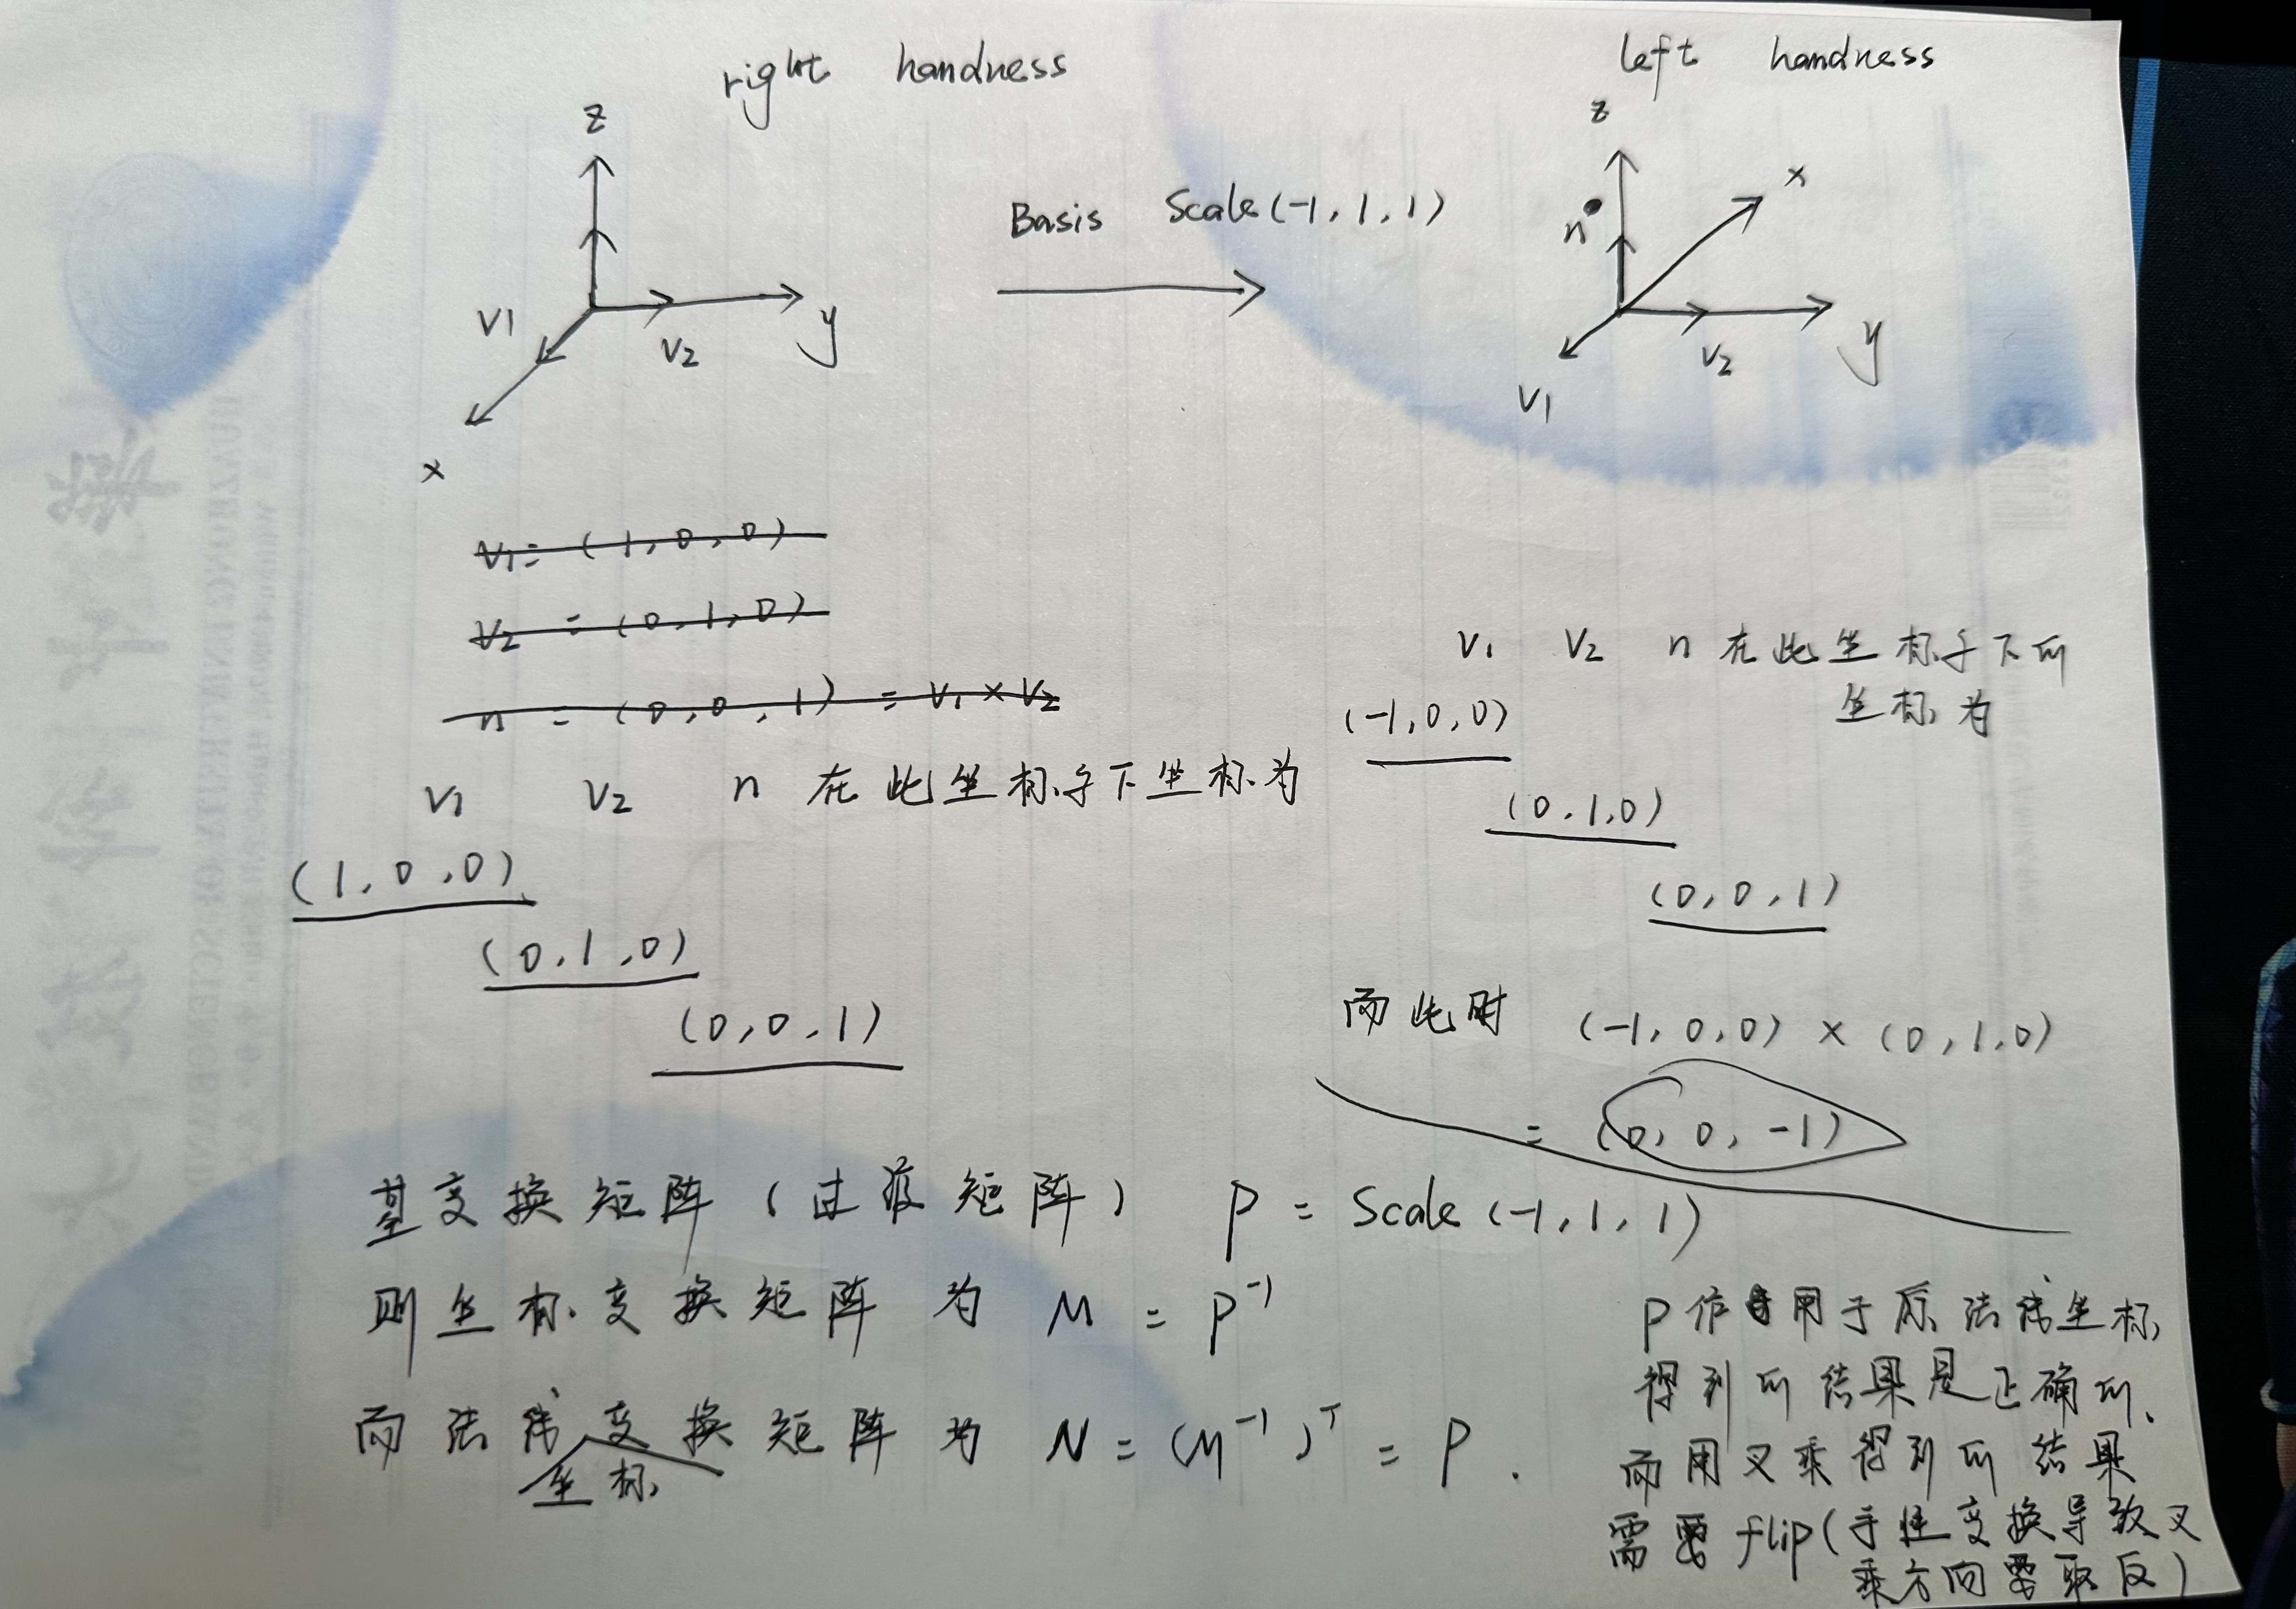 right handness
left handness
z
V1
V2
y
x
Basis Scale(-1, 1, 1)
z
x
n
V2
y
V1
V1 = (1, 0, 0)
V2 = (0, 1, 0)
n = (0, 0, 1) = V1 × V2
V1 V2 n 在此坐标系下坐标为
(1, 0, 0)
(0, 1, 0)
(0, 0, 1)
V1 V2 n 在此坐标系下的
坐标为
(-1, 0, 0)
(0, 1, 0)
(0, 0, 1)
而此时 (-1, 0, 0) × (0, 1, 0)
= (0, 0, -1)
基变换矩阵 (过渡矩阵) P = Scale (-1, 1, 1)
则坐标变换矩阵为 M = P⁻¹
而法线坐标变换矩阵为 N = (M⁻¹)ᵀ = P .
P作用于原法线坐标
得到的结果是正确的、
而用叉乘得到的结果
需要flip(手性变换导致叉
乘方向需取反)